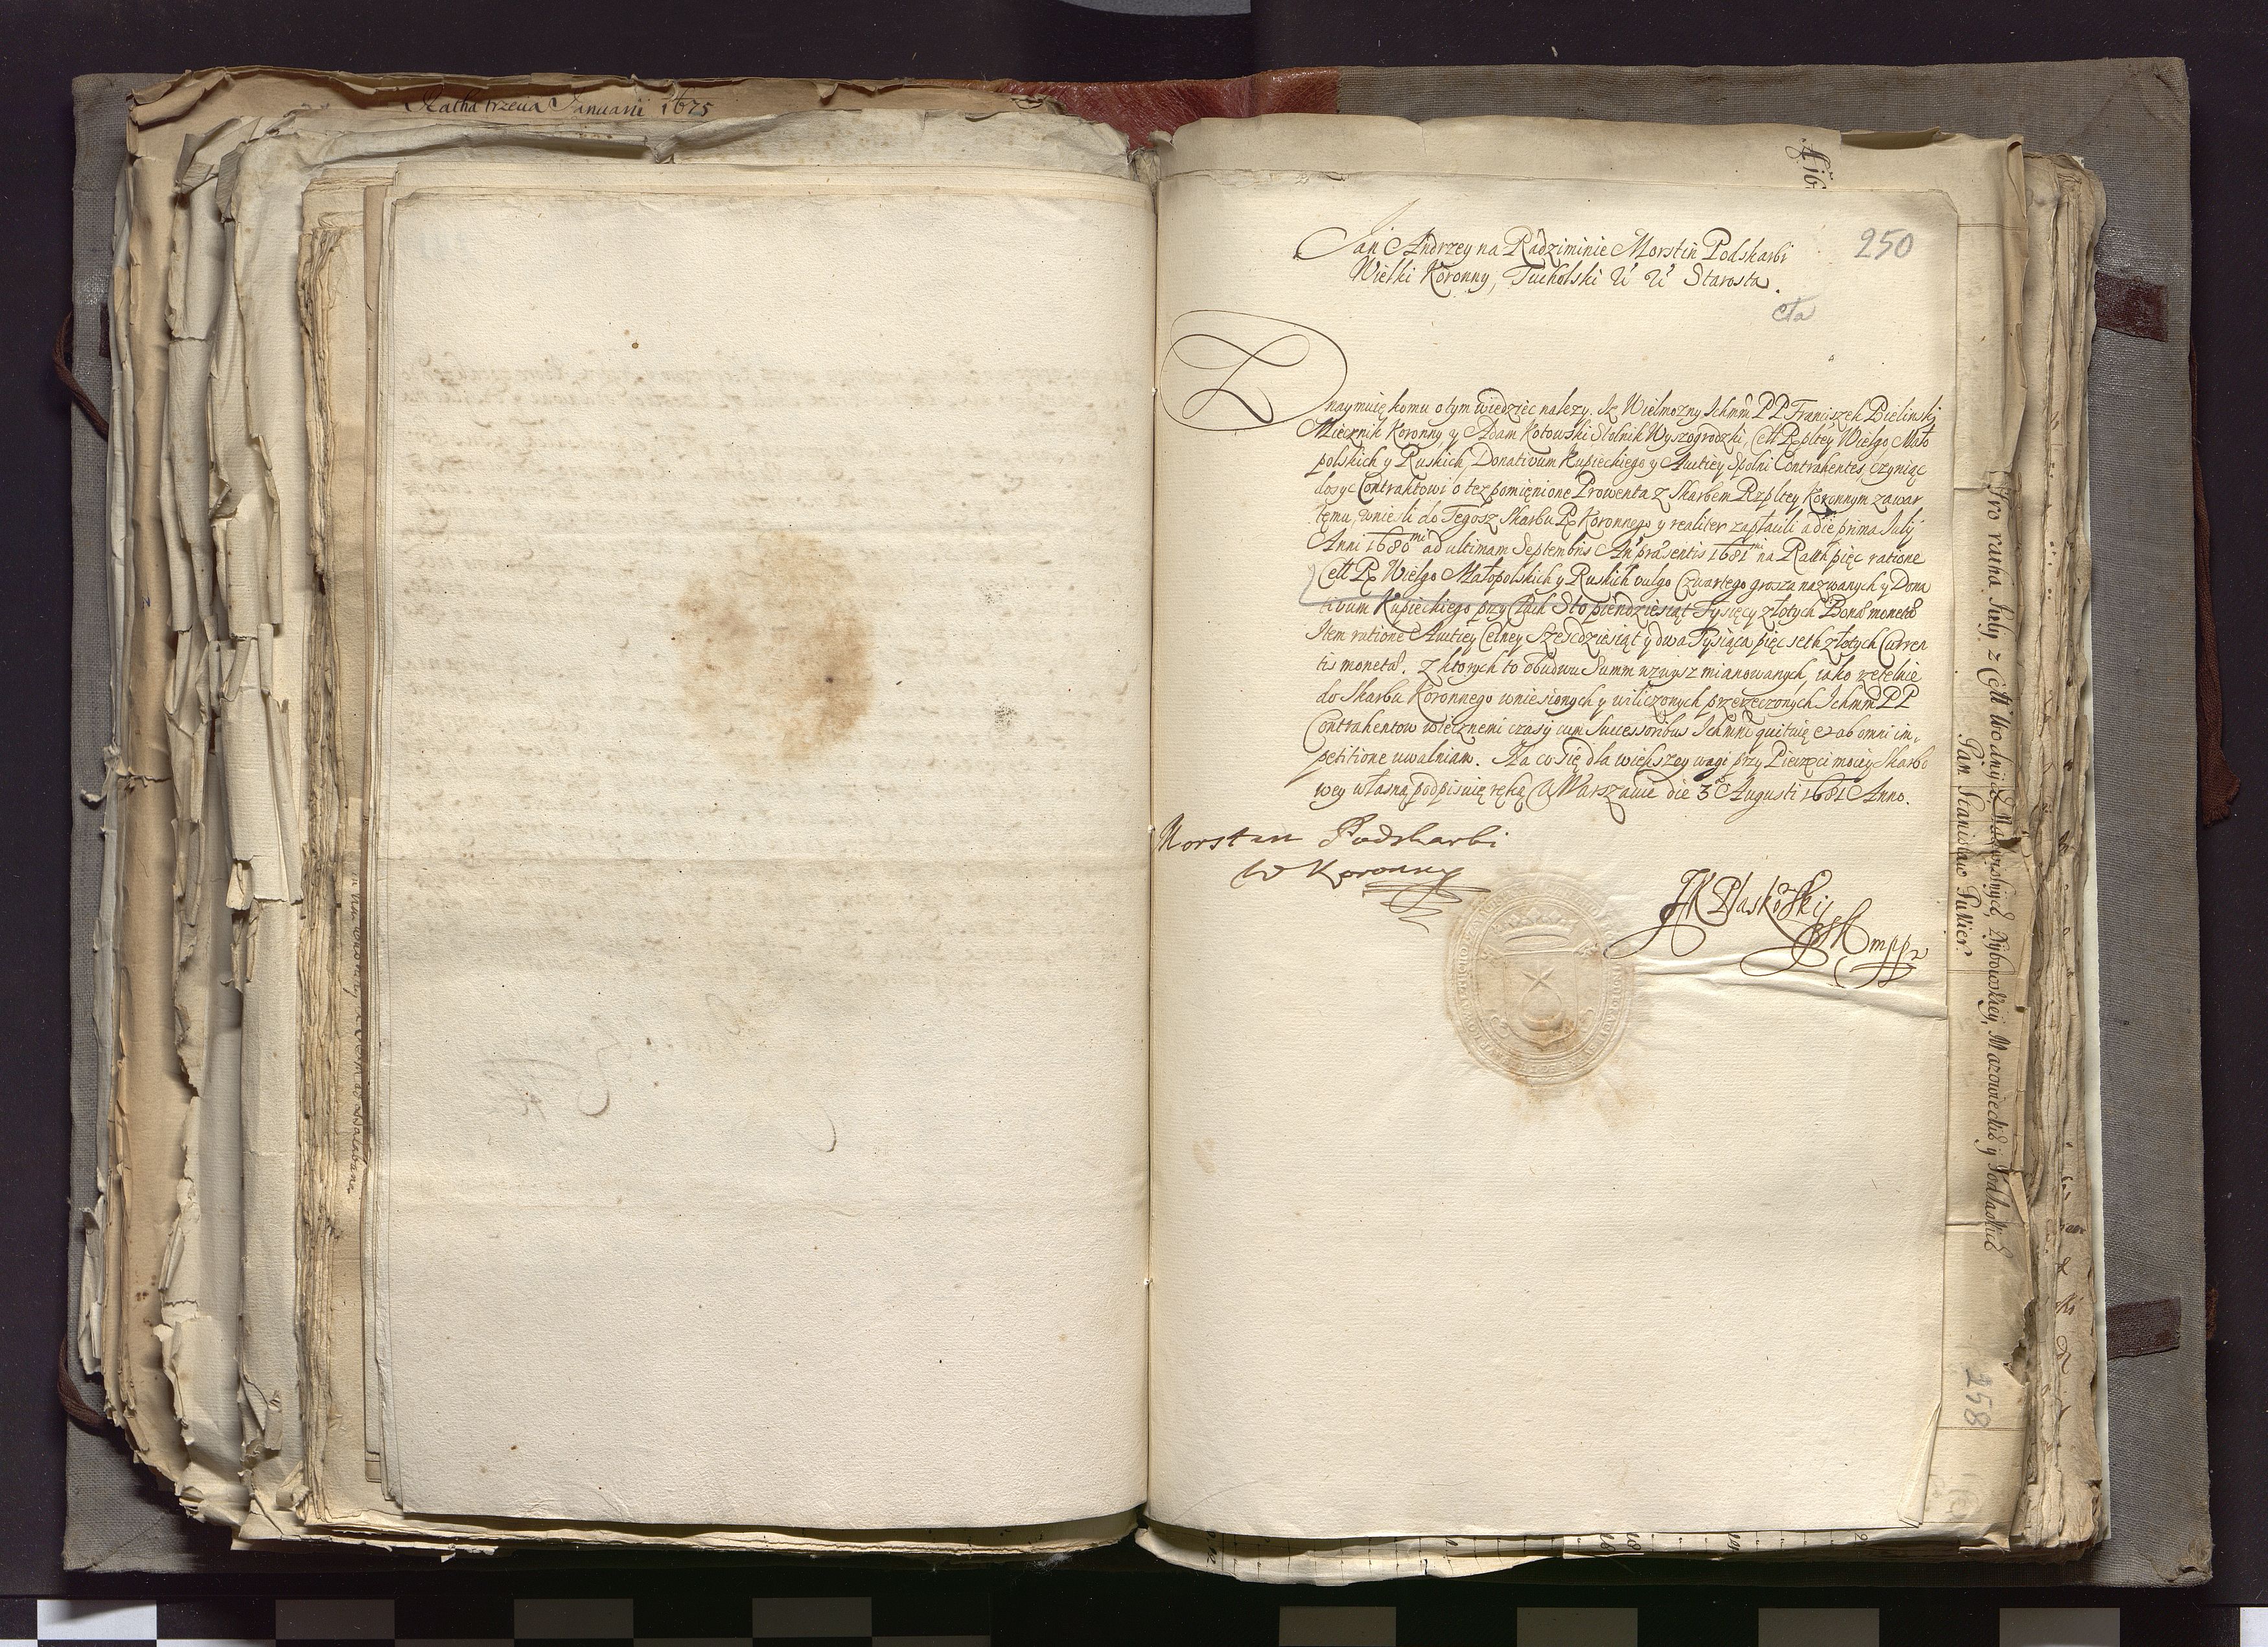 Ratha trzecia Januarii 1675
250
Jan Andrzey na Radziminie Morstin Podskarbi
Wielki Koronny, Tucholski Starosta.
cła
Znaymuię komu o tym wiedzieć nalezy. Iz Wielmozny Ichmm PP Franciszek Bielinski
Miecznik Koronny y Adam Kotowski Stolnik Wyszogrodzki, Cell Rpltey Wielgo Mało
polskich y Ruskich, Donativum Kupieckiego y Auktiey Spolni Contrahentes, czyniąc
dosyc Contraktowi o tez pomięnione Prowenta z Skarbem Rzpltey Koronnym zawar
temu, wniesli do Tegosz Skarbu Rp Koronnego y realiter zapłacili a die prima July
Anni 1680mi ad ultimam Septembris An præsentis 1681mi na Rath pięc ratione
Cell Rp Wielgo Małopolskich y Ruskich vulgo Czwartego grosza nazwanych y Dona
tivum Kupieckiego przy Cłach Sto pięndziesiąt Tysięcy złotych Bonæ monetæ
Item ratione Auktiey Celney Szescdziesiąt y dwa Tysiąca pięc seth złotych Curren
tis monetæ. Z ktorych to obudwu Summ wzwysz mianowanych, iako rzetelnie
do Skarbu Koronnego wniesionych y wiliczonych przerzeczonych Ichmm PP
Contrahentow wiecznemi czasy cum Successoribus Ichmm quituię et ab omni im,
petitione uwalniam. Na co się dla wiekszey wagi przy Pieczęci moiey Skarbo
wey własną podpisuię ręką w Warszawie die 3 Augusti 1681 Anno.
Morstin Podskarbi
W Koronny
JK Plaskowski
mpp
Pro ratha July z Cell Wodnych Mazowieckich y Podlaskich
Pan Stanisław
258